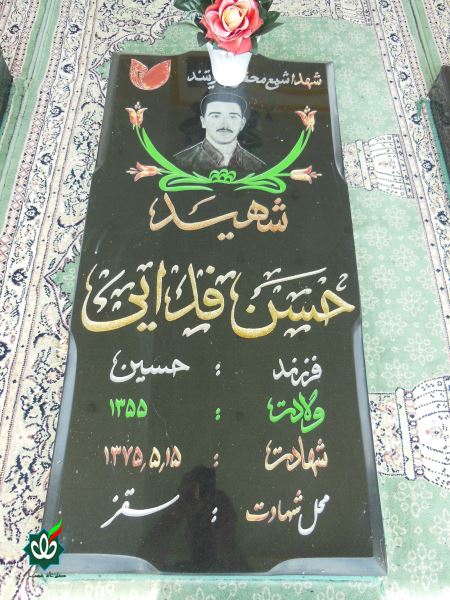 شهدا شمع محفل
شهید
حسن فدایی
فرزند : حسین
ولادت : ۱۳۵۵
شهادت : ۱۳۷۵٫۵٫۱۵
محل شهادت : سقز